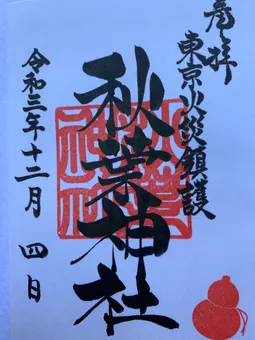 奉拝
東京火災鎮護
秋葉神社
令和三年十二月四日